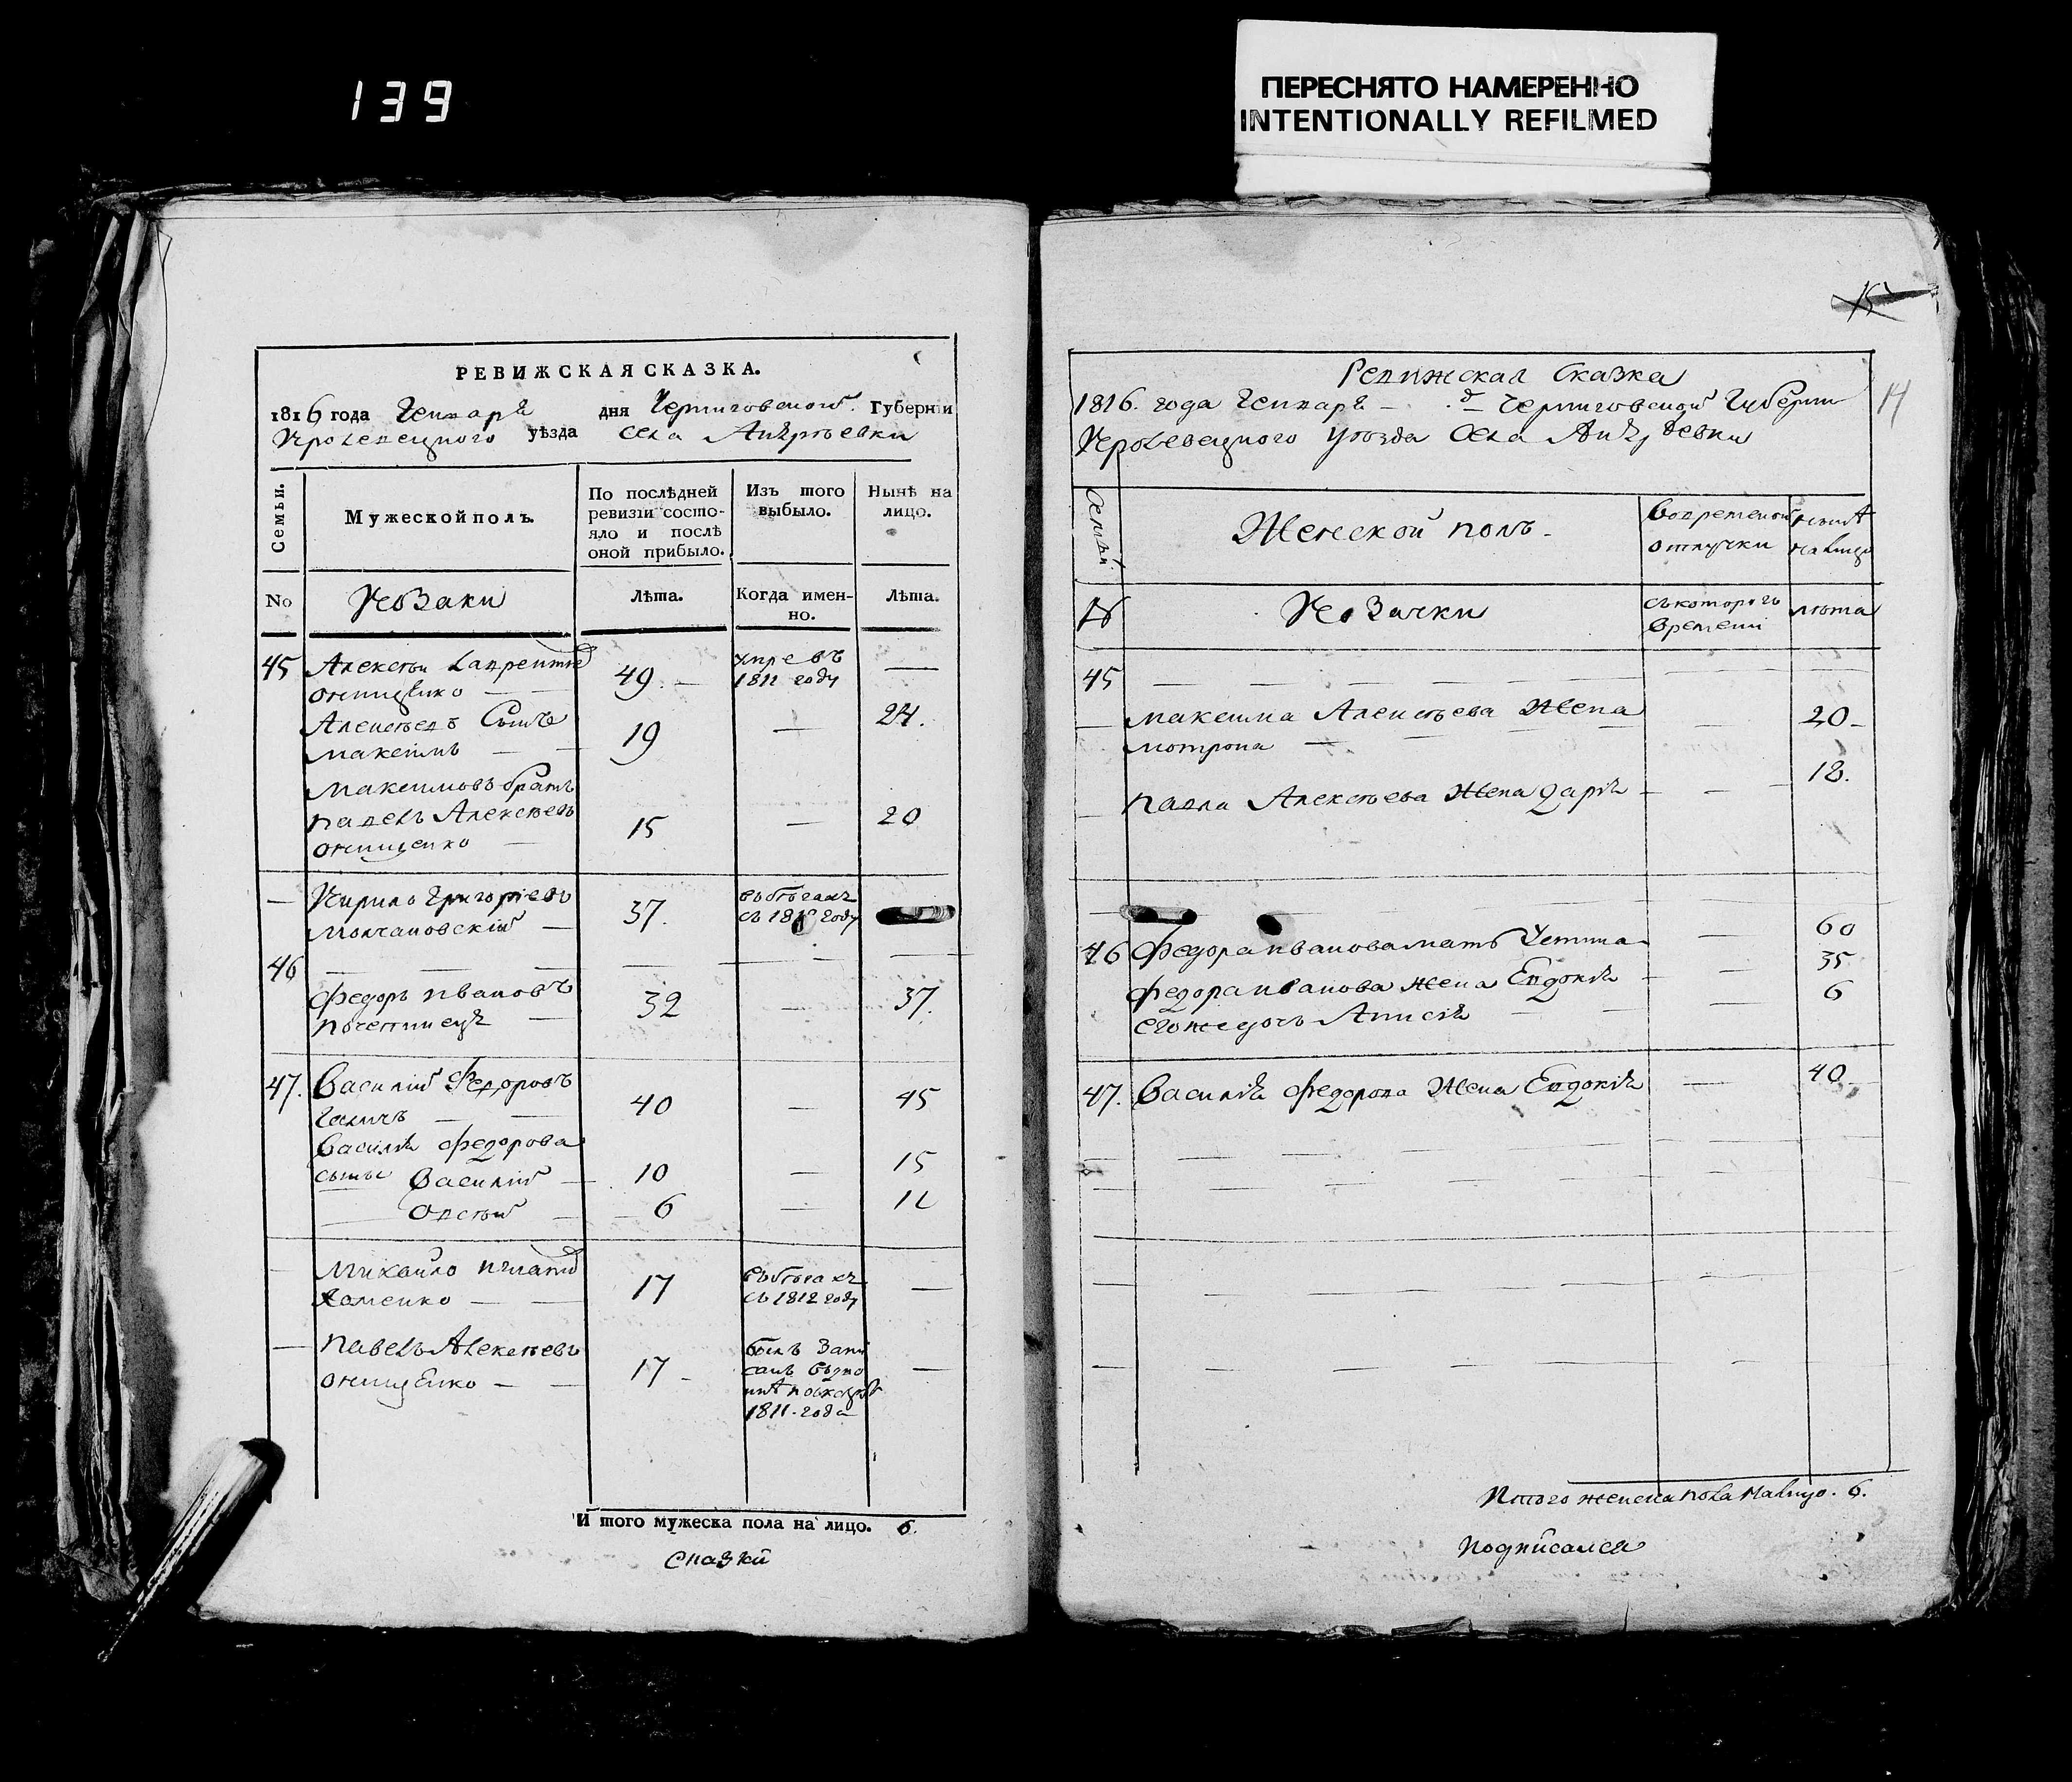 139
ПЕРЕСНЯТО НАМЕРЕННО
INTENTIONALLY REFILMED
РЕВИЖСКАЯ СКАЗКА.
1816 года Генваря дня Черниговской Губерніи
Кролевецкого уѣзда села Андреевки
Семьи.
Мужеской полъ.
По послѣдней
ревизіи состо-
яло и послѣ
оной прибыло.
Изъ того
выбыло.
Нынѣ на
лицо.
No
Козаки
Лѣта.
Когда имен-
но.
Лѣта.
45 Алексѣй Лаврентіев
Онищенко 49. умре въ
1811 году
Алексѣевъ Сынъ
Максимъ 19 24.
Максимовъ братъ
Павелъ Алексѣевъ
Онищенко 15 20
Кирило Григоріевъ
Молчановскій 37. въ бѣгахъ
съ 181 году
46
Федоръ Ивановъ
32 37.
47. Василій Федоровъ
Галичъ 40 45
Василія Федорова
сыны Василій 10 15
Овсѣй 6 11
Михайло Игнатов
Хоменко 17 въ бѣгахъ
съ 1812 году
Павелъ Алексѣевъ
Онищенко 17 былъ запи
санъ
1811 года
И того мужеска пола на лицо. 6.
Сказки
15
14
Ревижская Сказка
1816. года Генваря д Черниговской Губерніи
Кролевецкого уѣзда Села Андреевки
Семьи
Женской полъ
Во временной
отлучки
нынѣ
налицо
№
Козачки
съ которого
времени
лѣта
45
Максима Алексѣева Жена 20
Мотрона
Павла Алексѣева Жена Дарія 18.
46 Федора Иванова мать 60
Федора Иванова жена Евдокія 35
Его же дочь Анисія 6
47. Василія Федорова Жена Евдокія 40
Итого женска пола налицо. 6.
подписался